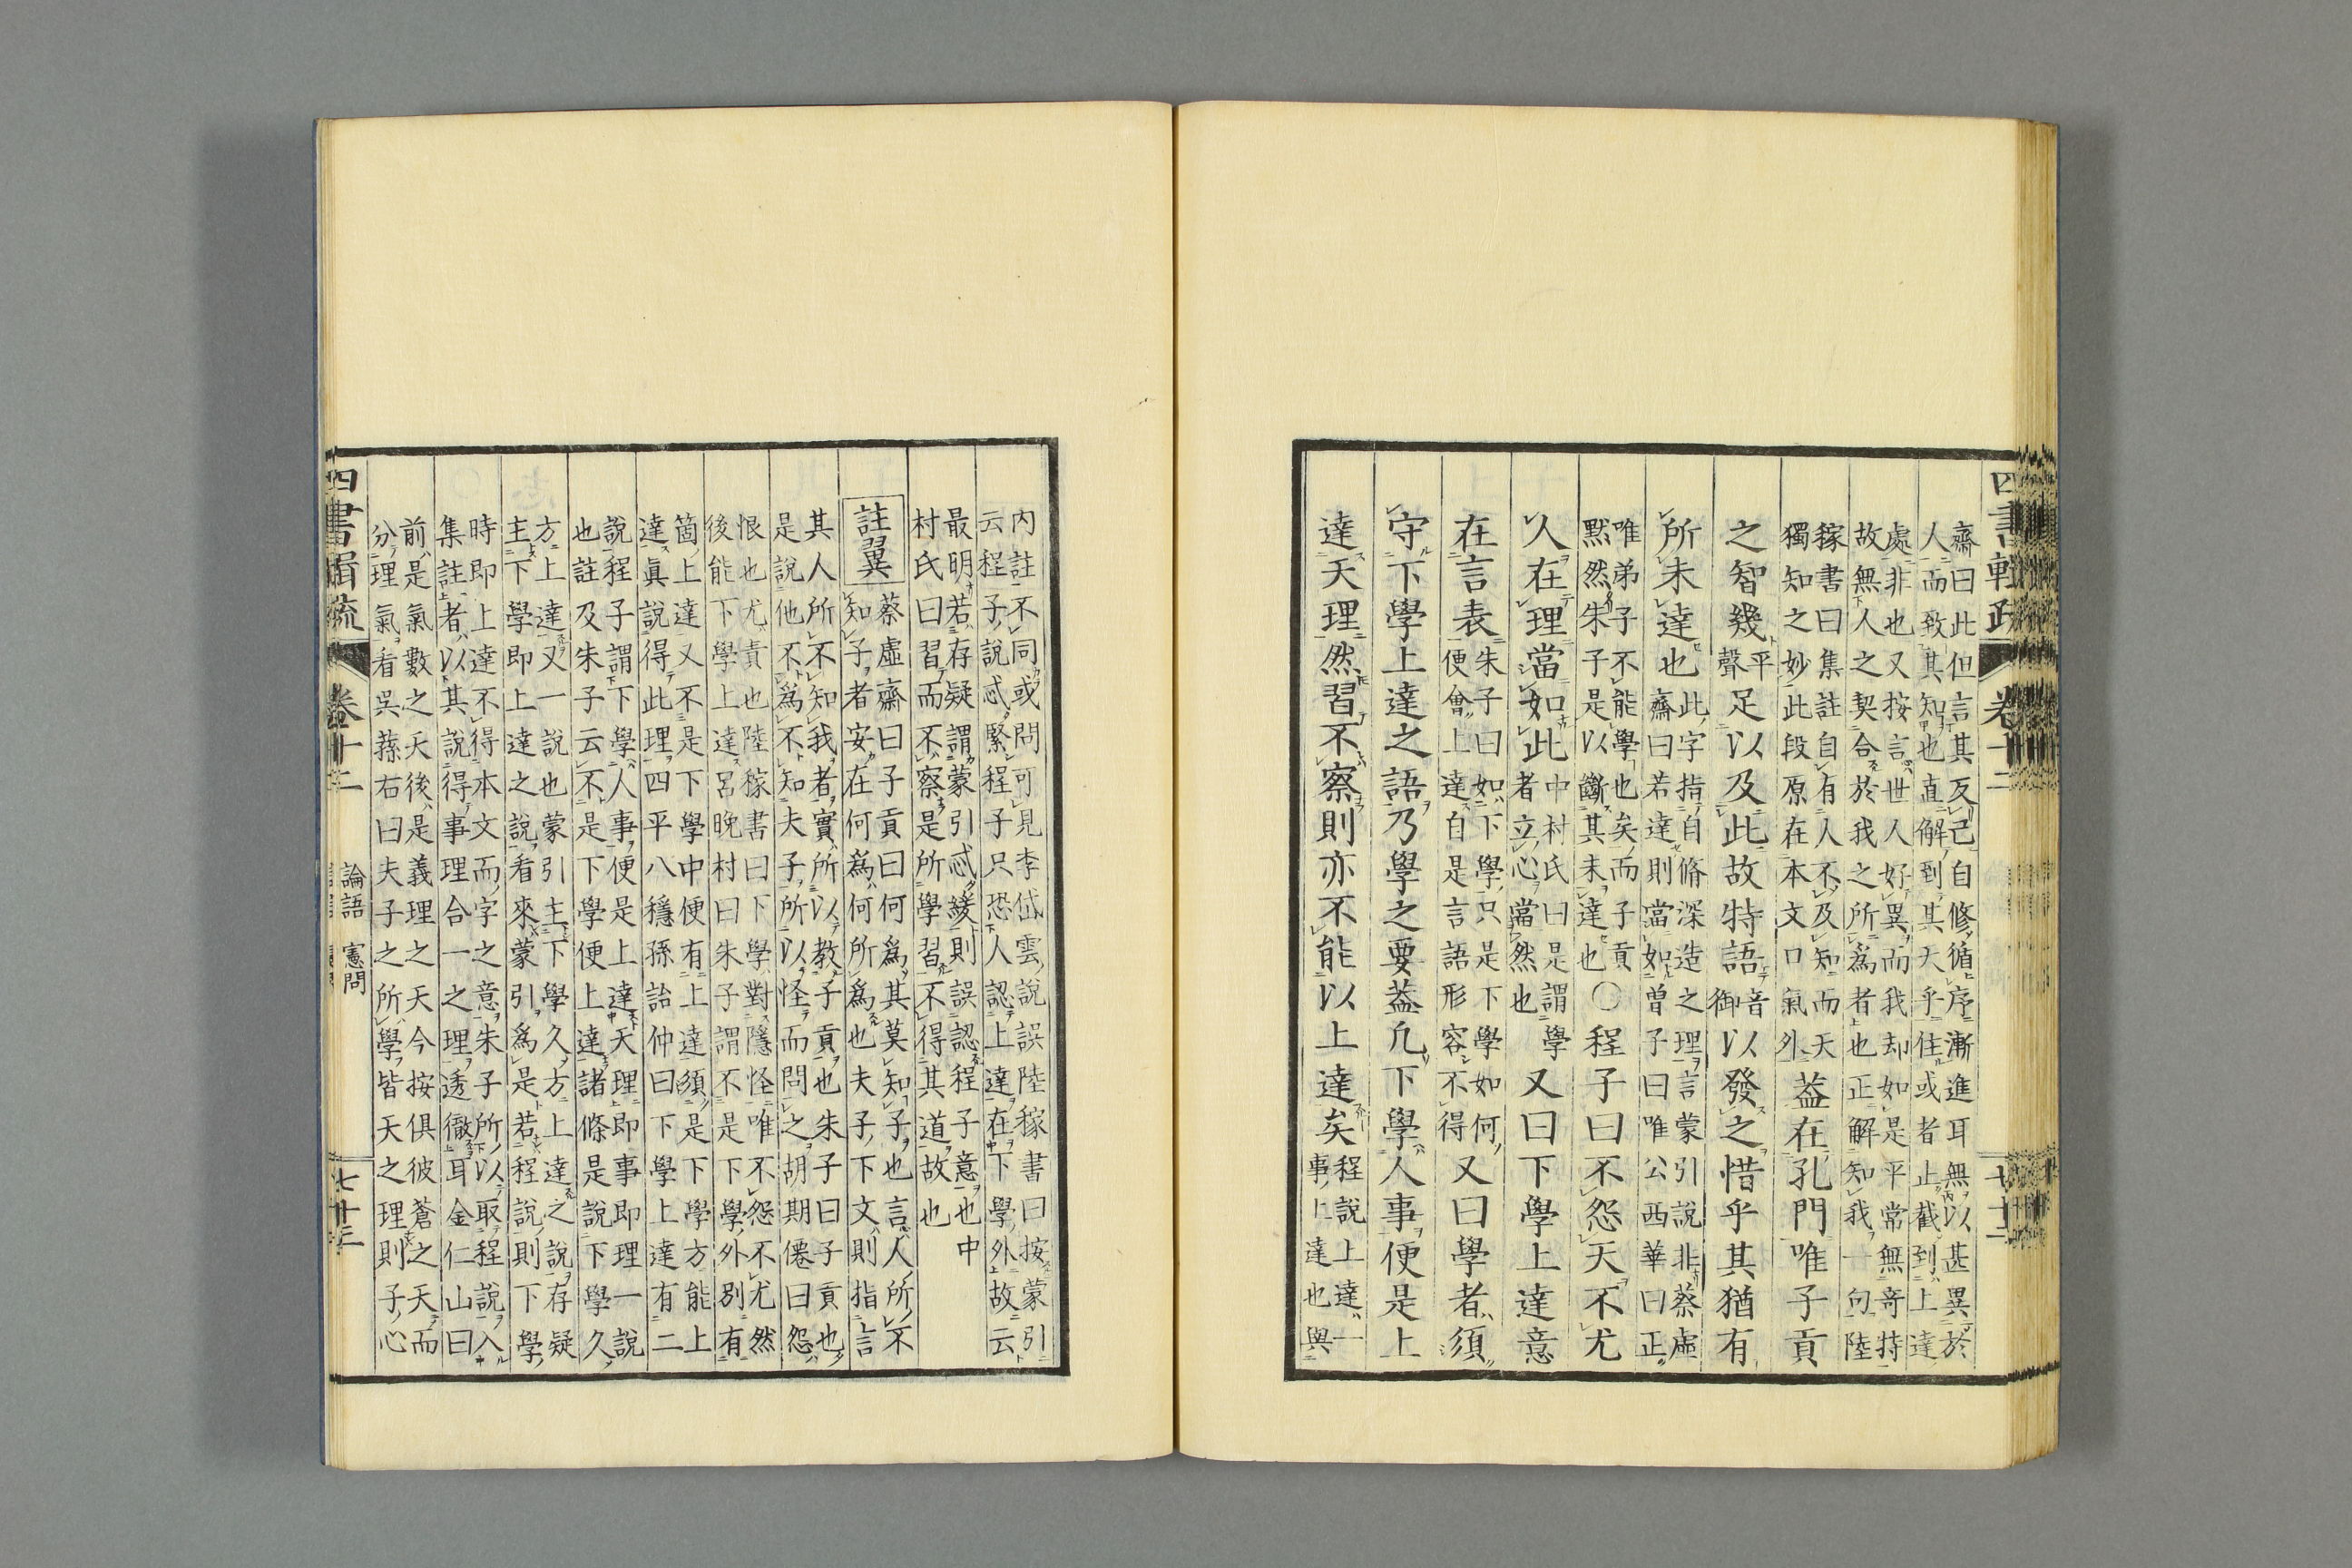 四書輯疏
卷十二
七十二
齋曰此但言其反己自修循序漸進耳無以甚異於
人而致其知也直解到其天乎住或者止截到上達
處非也又按言世人好異而我却如是平常無奇特
故無人之契合於我之所為者也正解知我十一句陸
稼書曰集註自有人不及知而天
獨知之妙此段原在本文口氣外
蓋在孔門唯子貢
之智幾
平
聲
足以及此故特語
音
御
以發之惜乎其猶有
所未達也
此字指自脩深造之理言蒙引說非蔡虛
齋曰若達則當如曾子曰唯公西華曰正
唯弟子不能學也矣而子貢
默然朱子是以斷其未達也
○程子曰不怨天不尤
人在理當如此
中村氏曰是謂學
者立心當然也
又曰下學上達意
在言表
朱子曰如下學只是下學如何
便會上達自是言語形容不得
又曰學者須
守下學上達之語乃學之要蓋凡下學人事便是上
達天理然習不察則亦不能以上達矣
程說上達一
事上達也與
內註不同或問可見李岱雲說誤陸稼書曰按蒙引
云程子說忒緊程子只恐人認上達在下學外故云
最明若存疑謂蒙引忒緩則誤認程子意也中
村氏曰習而不察是所學習不得其道故也
註翼
蔡虛齋曰子貢曰何為其莫知子也言人所不
知子者安在何為何所為也夫子下文則指言
其人所不知我者實所以教子貢也朱子曰子貢也
是說他不為不知夫子所以怪而問之胡期僊曰怨
恨也尤責也陸稼書曰下學對隱怪唯不怨不尤然
後能下學上達呂晚村曰朱子謂不是下學外別有
箇上達又不是下學中便有上達須是下學方能上
達眞說得此理四平八穩孫詒仲曰下學上達有二
說程子謂下學人事便是上達天理即事即理一說
也註及朱子云不是下學便上達諸條是說下學久
方上達又一說也蒙引主下學久方上達之說存疑
主下學即上達之說看來蒙引為是若程說則下學
時即上達不得本文而字之意朱子所以取程說入
集註者以其說得事理合一之理透徹耳金仁山曰
前是氣數之天後是義理之天今按俱彼蒼之天而
分理氣看吳蓀右曰夫子之所學皆天之理則子心
四書輯疏
卷十二
論語 憲問
七十三